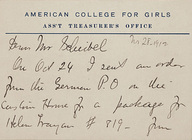 AMERICAN COLLEGE FOR GIRLS
ASS'T TREASURER'S OFFICE
Dear Mr Scheibel
On Oct 24 I sent an order
from the German P.O on the
Home for a package for
Helen # 319 - from